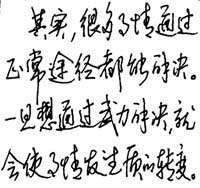 其实,很多事情通过
正常途径都能解决。
一旦想通过武力解决,就
会使事情发生质的转变。